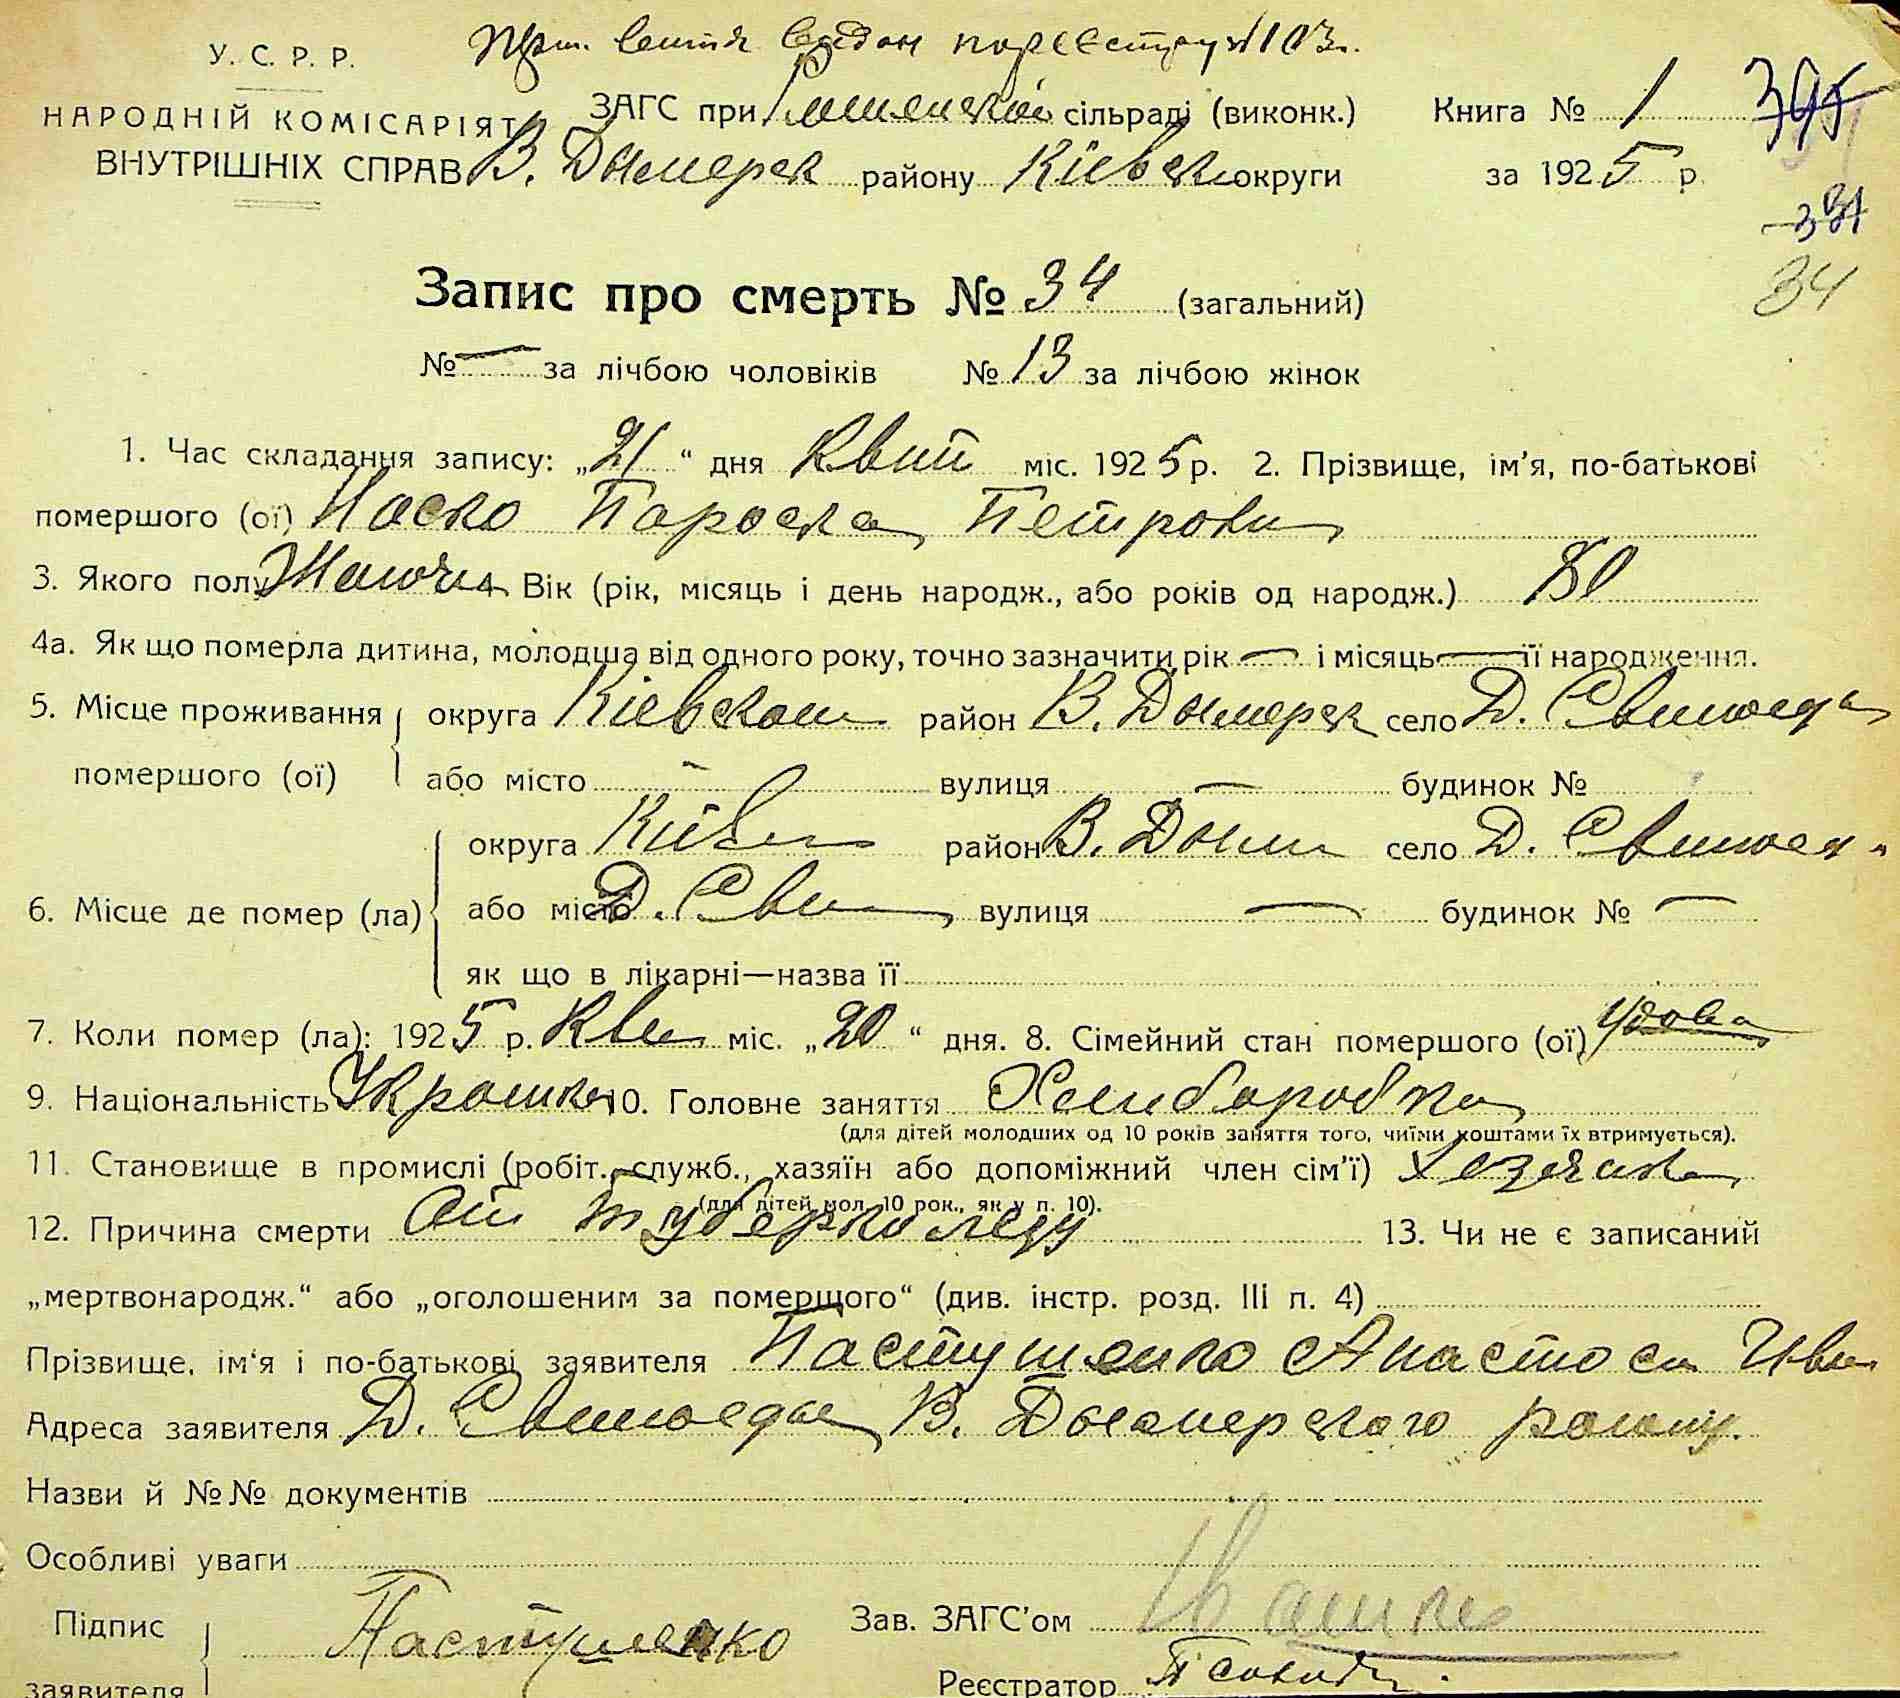 У. С. Р. Р.
НАРОДНІЙ КОМІСАРІЯТ
ВНУТРІШНІХ СПРАВ
ЗАГС при сільраді (виконк.)
В. Дымерск району Кіевск округи
Книга № 1
за 1925 р.
395
331
34
Запис про смерть № 34 (загальний)
№ — за лічбою чоловіків № 13 за лічбою жінок
1. Час складання запису: „21“ дня Квит міс. 1925 р. 2. Прізвище, ім'я, по-батькові
помершого (ої) Носко Пароска Петровн
3. Якого полу Вік (рік, місяць і день народж., або років од народж.) 80
4а. Як що померла дитина, молодша від одного року, точно зазначити рік — і місяць — її народження.
5. Місце проживання помершого (ої) округа Кіевскои район В. Дымерск село Д. Свиноеды
або місто — вулиця — будинок №
6. Місце де помер (ла) округа Киев район В. Дым село Д. Свиноед
або місто Д. Сви вулиця — будинок № —
як що в лікарні—назва її
7. Коли помер (ла): 1925 р. Кви міс. „20“ дня. 8. Сімейний стан помершого (ої) Удова
9. Національність Украинка 10. Головне заняття Хлиборобка
(для дітей молодших од 10 років заняття того, чиїми коштами їх втримується).
11. Становище в промислі (робіт., служб., хазяїн або допоміжний член сім'ї) Хозяика
(для дітей мол. 10 рок., як у п. 10).
12. Причина смерти От туберкольозу 13. Чи не є записаний
„мертвонародж.“ або „оголошеним за померщого“ (див. інстр. розд. III п. 4)
Прізвище, ім'я і по-батькові заявителя Пастушенко Анастоси Ив
Адреса заявителя Д. Свиноеды В. Дымерского раиону.
Назви й №№ документів
Особливі уваги
Підпис заявителя Пастушенко
Зав. ЗАГС'ом
Реєстратор